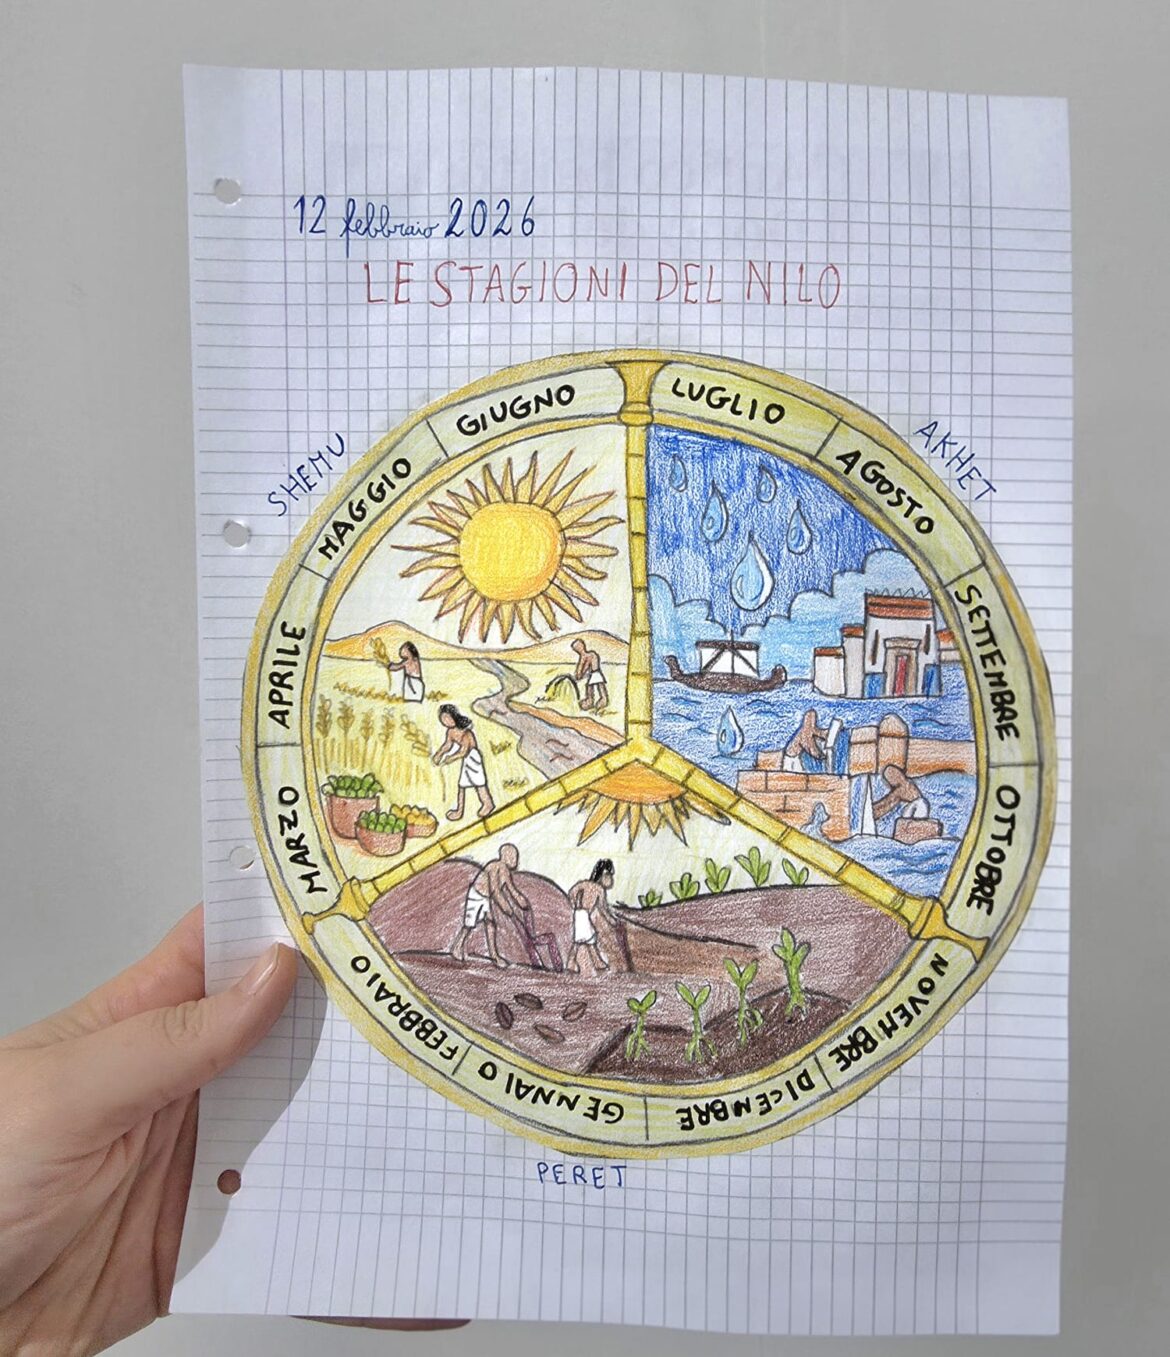 12 febbraio 2026
LE STAGIONI DEL NILO
LUGLIO
AGOSTO
SETTEMBRE
OTTOBRE
NOVEMBRE
DICEMBRE
GENNAIO
FEBBRAIO
MARZO
APRILE
MAGGIO
GIUGNO
AKHET
PERET
SHEMU